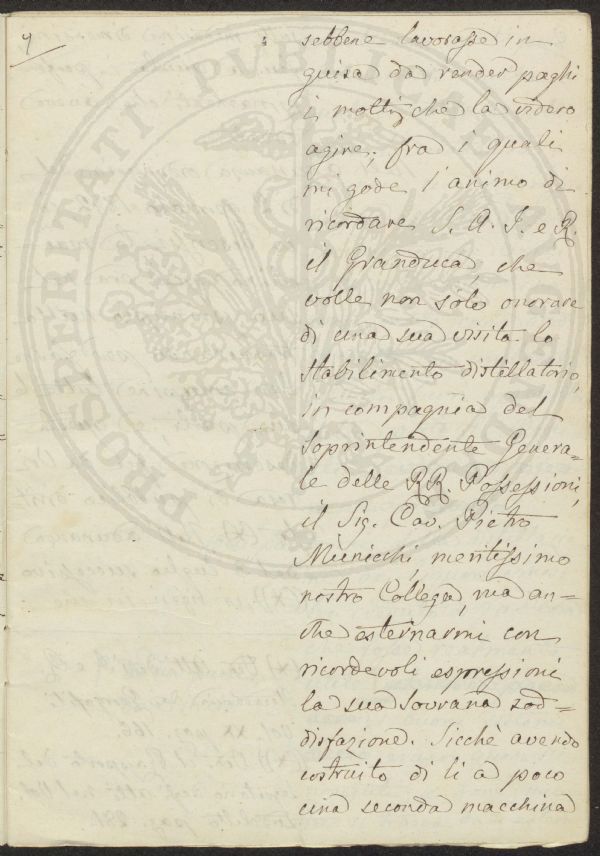 9
sebbene lavorasse in
guisa da render paghi
i molti, che la videro
agire; fra i quali
mi gode l'animo di
ricordare S. A. I. e R.
il Granduca, che
volle non solo onorare
di una sua visita lo
stabilimento distillatorio,
in compagnia del
Soprintendente Genera=
le delle RR. Possessioni,
il Sig. Cav. Pietro
Municchi, meritissimo
nostro Collega, ma an=
che esternarmi con
ricordevoli espressioni
la sua Sovrana sod=
disfazione. Sicchè avendo
costruito di lì a poco
una seconda macchina
PROSPERITATI PUBLICAE